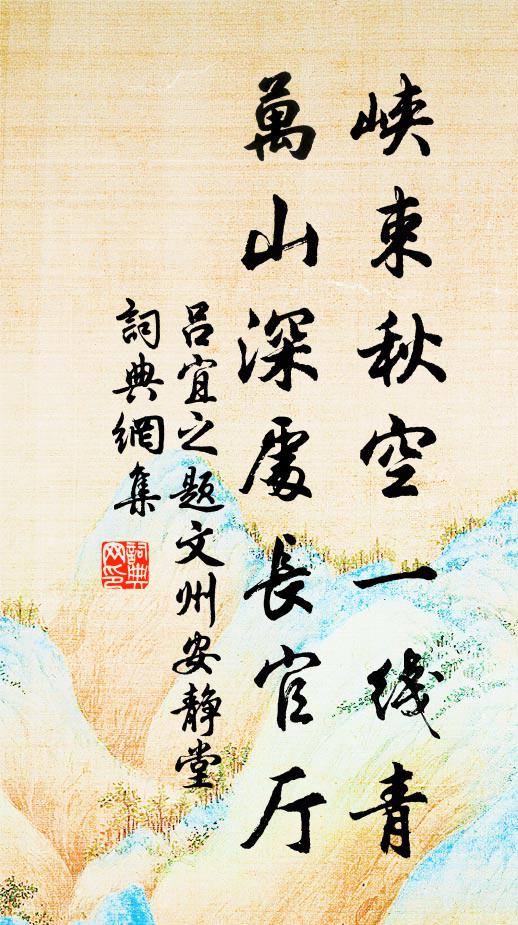 峡束秋空一线青
萬山深處長官厅
吕宜之题文州安靜堂
詞典網集
詞典网印